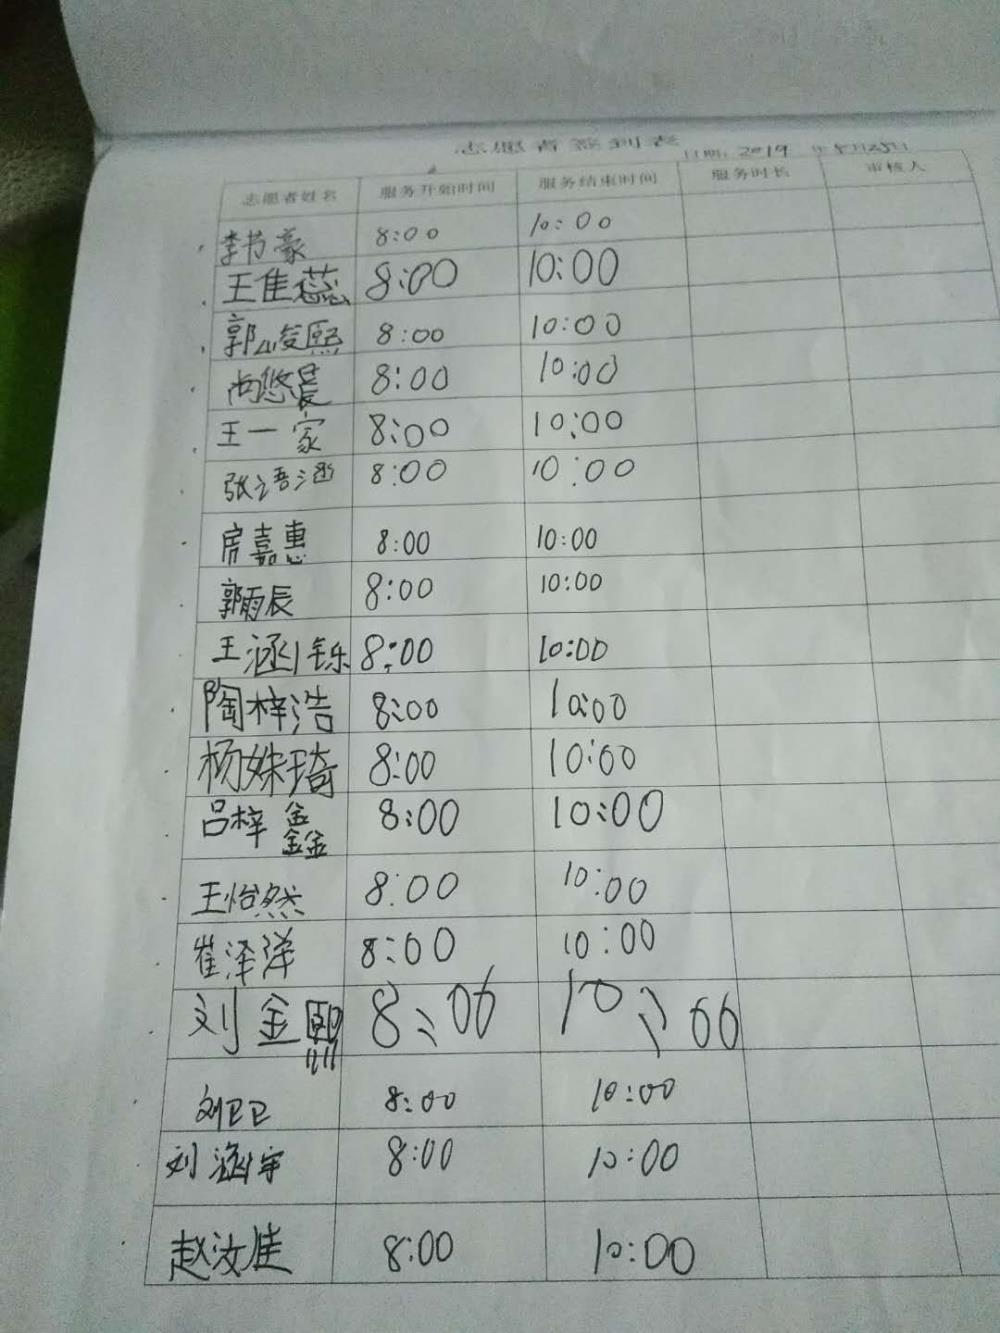 志愿者签到表
日期：2019 年5月25日
志愿者姓名 服务开始时间 服务结束时间 服务时长 审核人
李书豪 8:00 10:00
王佳蕊 8:00 10:00
郭峻熙 8:00 10:00
尚悠晨 8:00 10:00
王一家 8:00 10:00
张语涵 8:00 10:00
房嘉惠 8:00 10:00
郭雨辰 8:00 10:00
王涵铄 8:00 10:00
陶梓浩 8:00 10:00
杨姝琦 8:00 10:00
吕梓鑫 8:00 10:00
王怡然 8:00 10:00
崔泽洋 8:00 10:00
刘金熙 8:00 10:00
刘卫卫 8:00 10:00
刘涵宇 8:00 10:00
赵汝佳 8:00 10:00